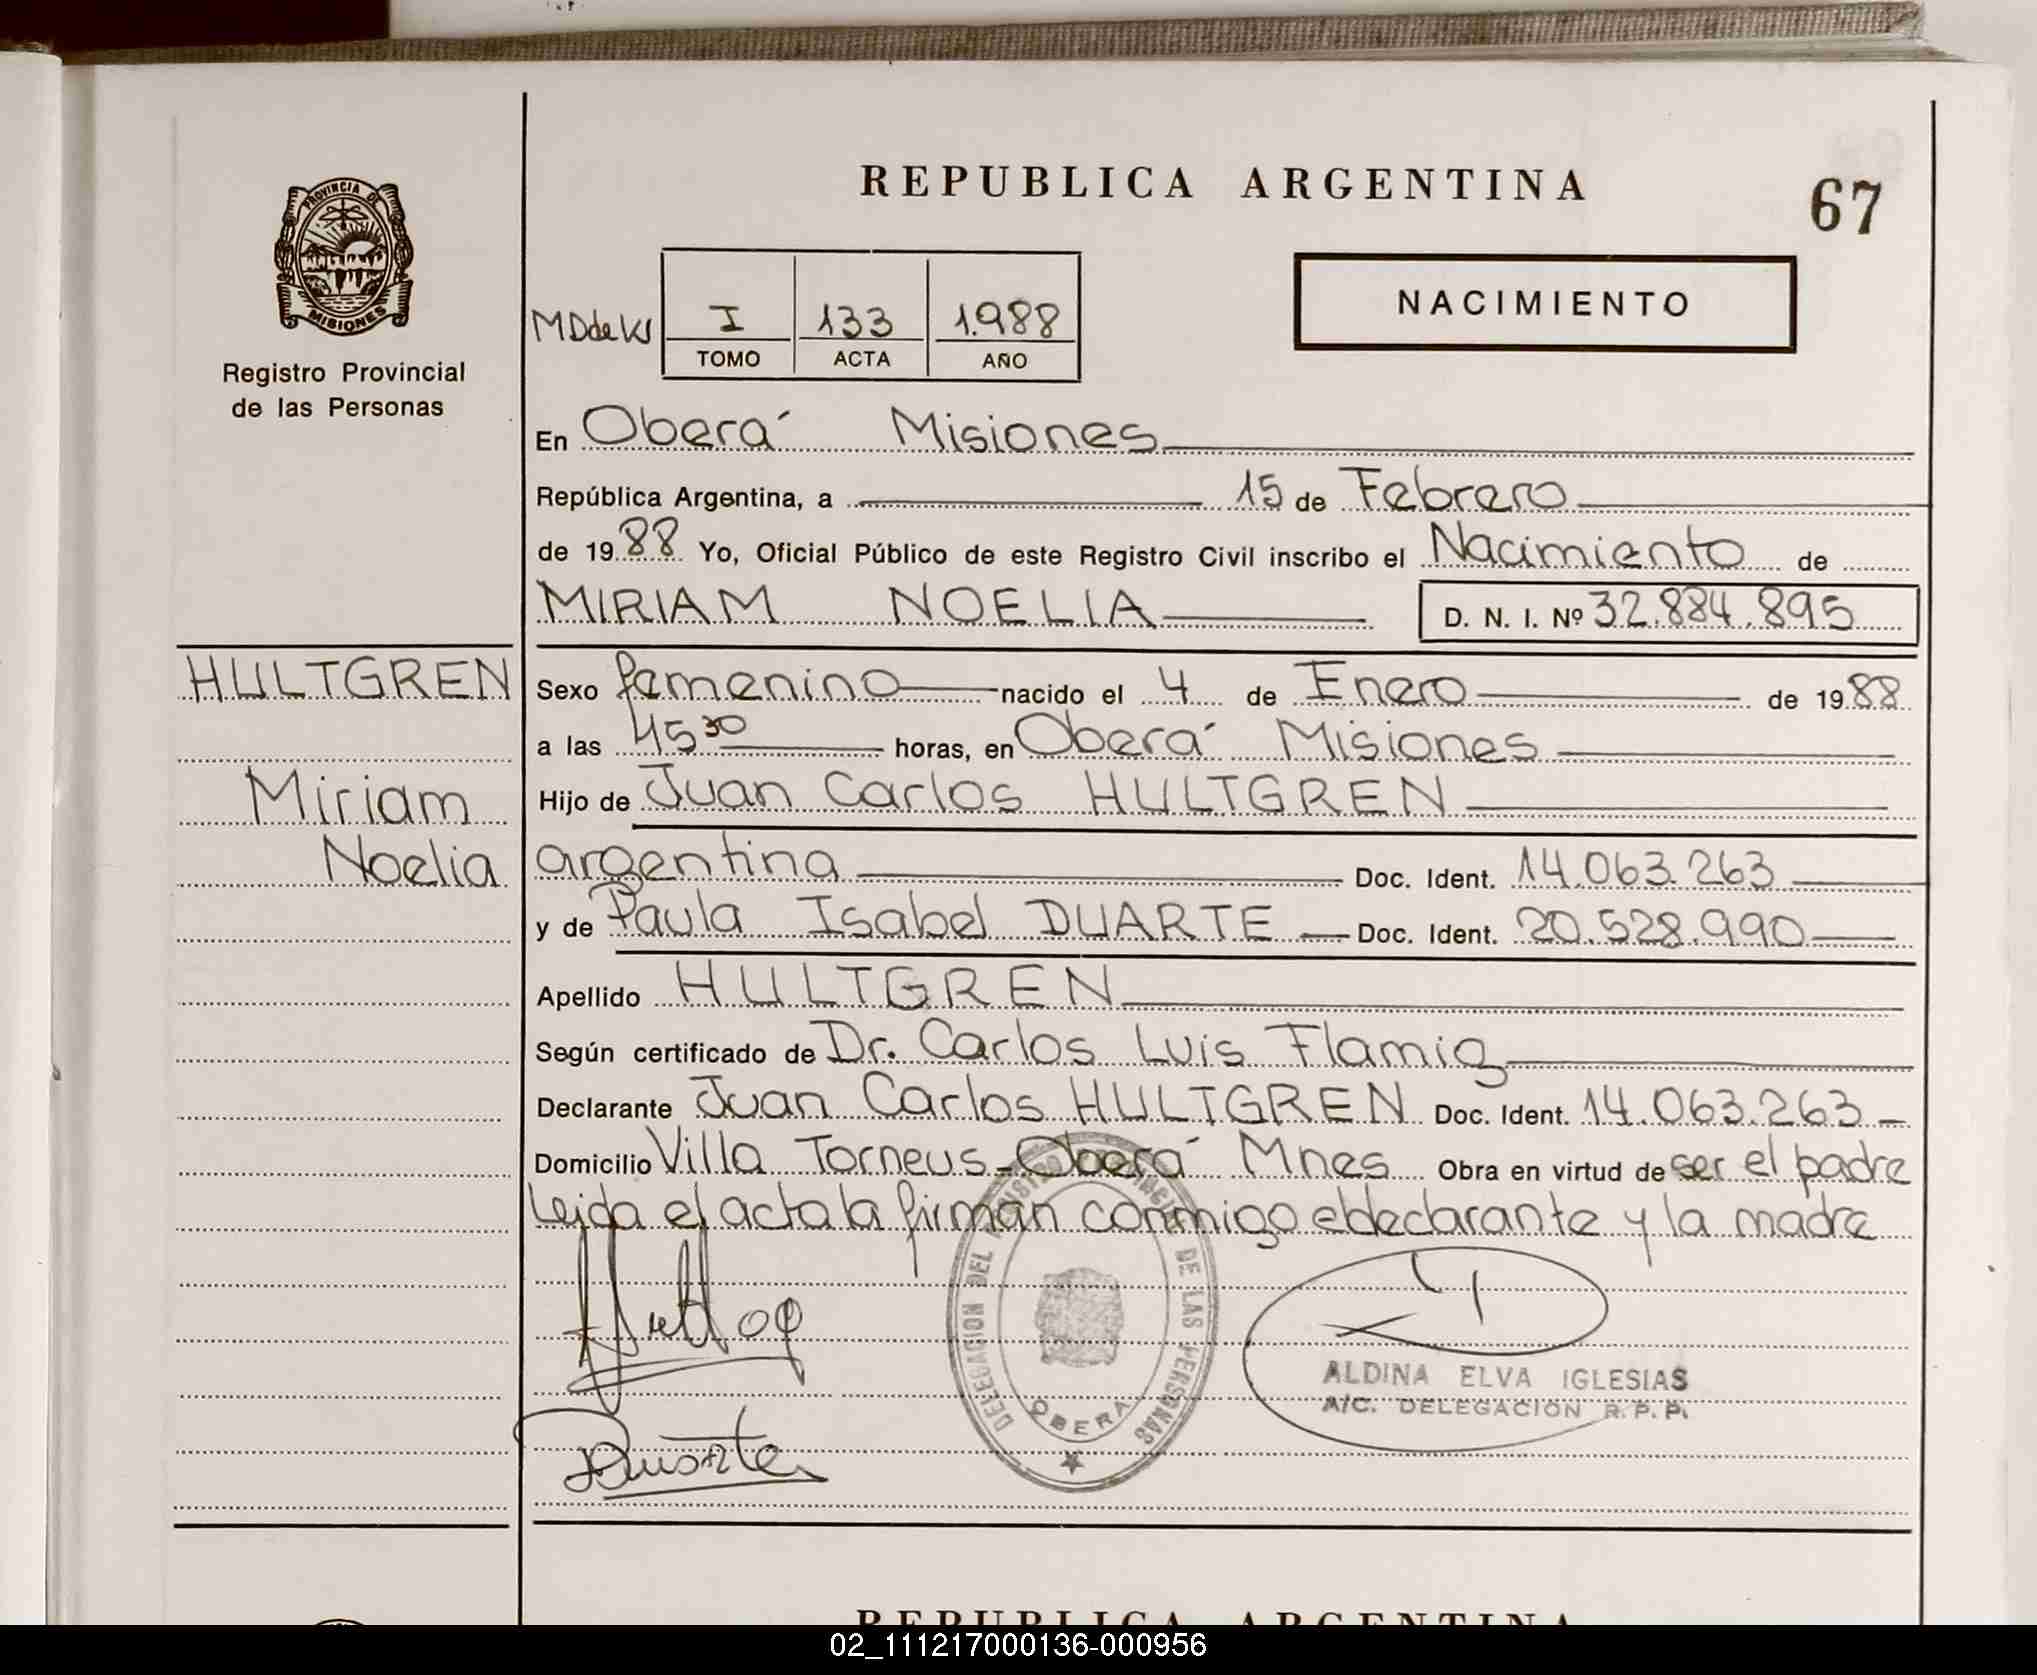 REPUBLICA ARGENTINA
67
PROVINCIA DE
MISIONES
Registro Provincial
de las Personas
NACIMIENTO
I 133 1.988
TOMO ACTA AÑO
En Oberá Misiones
República Argentina, a 15 de Febrero
de 1988 Yo, Oficial Público de este Registro Civil inscribo el Nacimiento de
MIRIAM NOELIA D. N. I. Nº 32.884.895
HULTGREN
Miriam
Noelia
Sexo femenino nacido el 4 de Enero de 1988
a las 15 30 horas, en Oberá Misiones
Hijo de Juan Carlos HULTGREN
argentina Doc. Ident. 14.063.263
y de Paula Isabel DUARTE Doc. Ident. 20.528.990
Apellido HULTGREN
Según certificado de Dr. Carlos Luis Flamig
Declarante Juan Carlos HULTGREN Doc. Ident. 14.063.263
Domicilio Villa Torneus - Oberá Mnes Obra en virtud de ser el padre
Leida el acta la firman conmigo el declarante y la madre
DELEGACION DEL REGISTRO PROVINCIAL DE LAS PERSONAS
OBERA
Duarte
ALDINA ELVA IGLESIAS
A/C. DELEGACION R. P. P.
REPUBLICA ARGENTINA
02_111217000136-000956